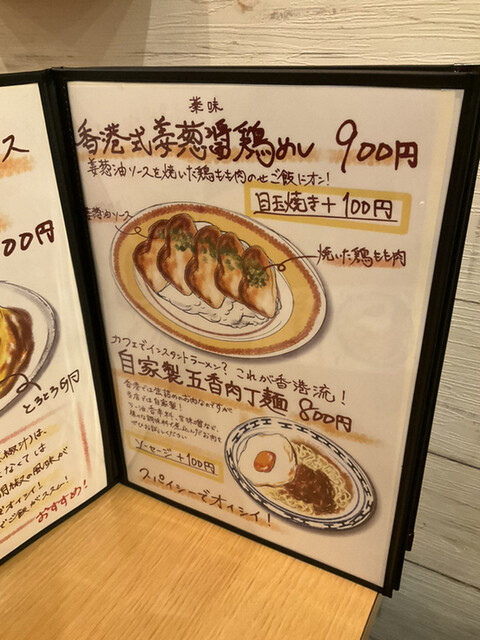 ス
00円
とろとろ卵
おすすめ!
薬味
香港式姜葱醤鶏めし 900円
姜葱油ソースを焼いた鶏もも肉のせご飯にオン!
目玉焼き+100円
姜葱油ソース
焼いた鶏もも肉
カフェでインスタントラーメン? これが香港流!
自家製五香肉丁麺 800円
香港では缶詰めのお肉なのですが
当店では自家製!
ぜひお試しください
ソーセージ+100円
スパイシーでオイシイ!